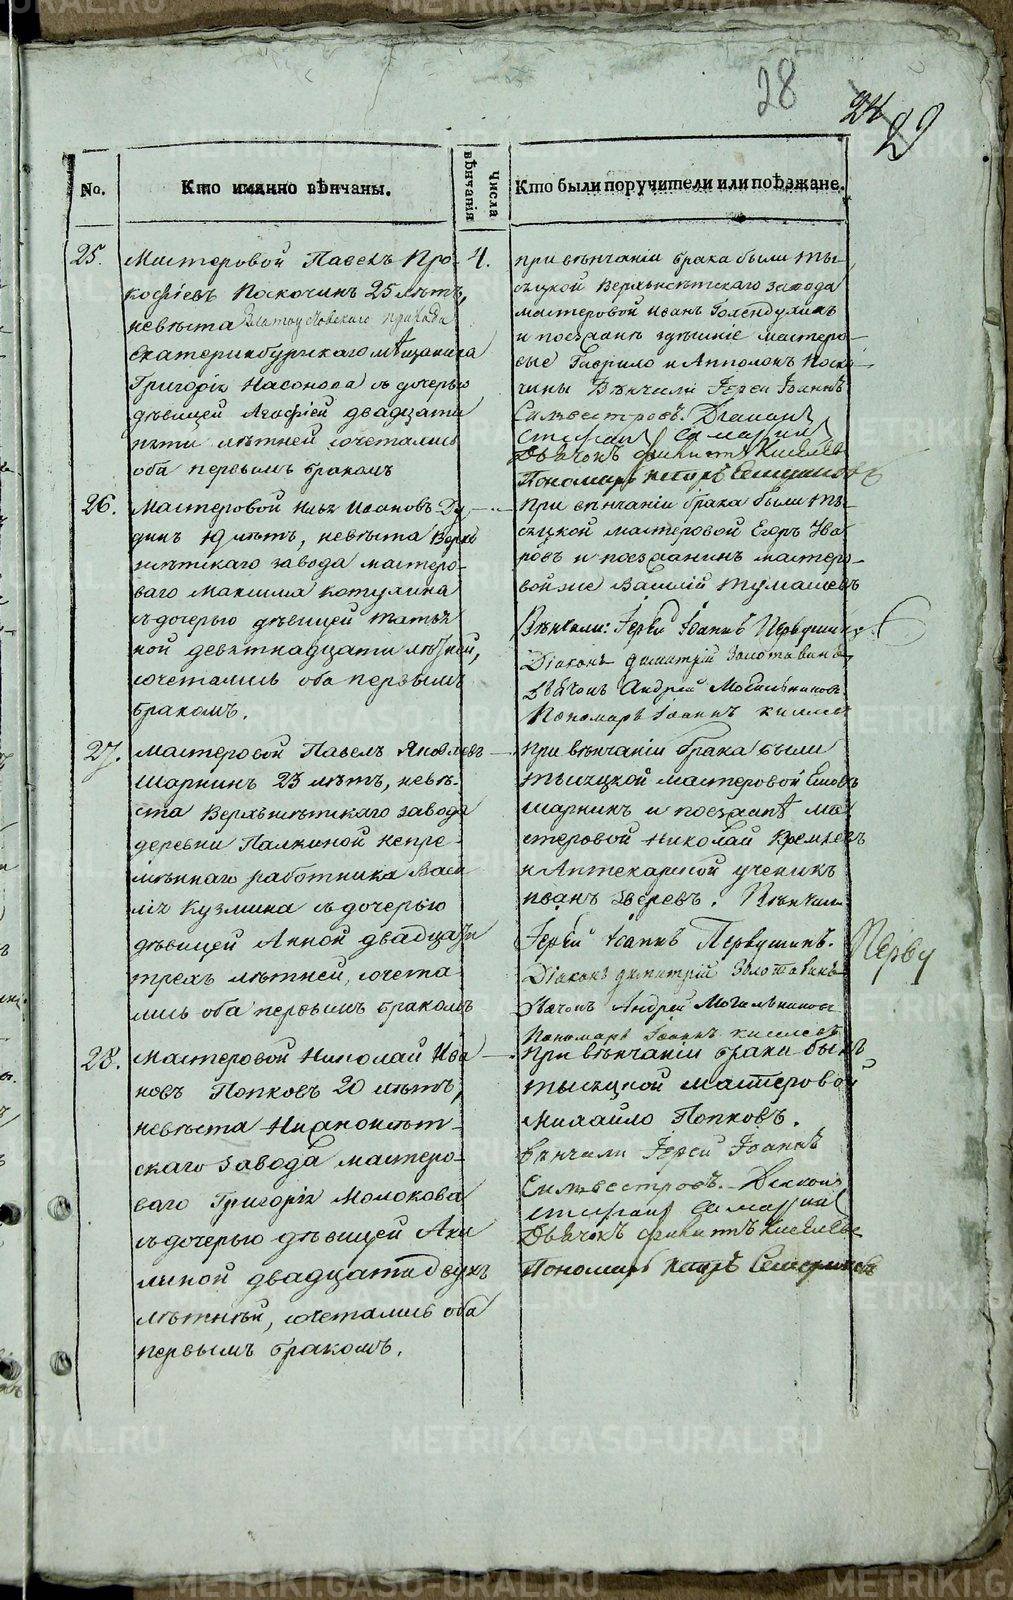 28
24
29
№.
Кто именно вѣнчаны.
Числа вѣнчанія
Кто были поручители или поѣзжане.
25.
Мастеровой Павелъ Про-
кофіевъ Поскочинъ 25 лѣтъ,
невѣста Златоустовскаго прихода
Екатеринбургскаго мѣщанина
Григорія Насонова съ дочерью
дѣвицей Агафіей двадцати
пяти лѣтней сочетались
оба первымъ бракомъ
4.
при вѣнчаніи брака были ты-
сяцкой Верхъисетскаго завода
мастеровой Иванъ Голендухинъ
и поезжане здѣшніе мастеро-
вые Гаврило и Апполонъ Поско-
чины Вѣнчили Іерей Іоаннъ
Сильвестровъ. Діаконъ
Стефанъ
Дьячокъ Филиппъ Киселевъ
Пономарь Петръ
26.
Мастеровой Илья Ивановъ Ду-
динъ 19 лѣтъ, невѣста Верхъ
исѣтскаго завода мастеро-
ваго Максима Котугина
съ дочерью дѣвицей Татья
ной девятнадцати лѣтней,
сочетались оба первымъ
бракомъ.
При вѣнчаніи брака были ты-
сяцкой мастеровой Егоръ Ува
ровъ и поезжанинъ мастеро-
вой же Василій Тумашевъ
Вѣнчали: Іерей Іоаннъ Первушинъ.
Діаконъ Димитрій Золотавинъ
Дьячокъ Андрей Могильниковъ
Пономарь Іоаннъ Киселевъ
27.
Мастеровой Павелъ Яковлевъ
Шарнинъ 23 лѣтъ, невѣ-
ста Верхъисѣтскаго завода
деревни Палкиной непре-
мѣннаго работника Васи
лія Кузмина съ дочерью
дѣвицей Анной двадцати
трехъ лѣтней, сочета-
лись оба первымъ бракомъ
при вѣнчаніи брака были
тысяцкой мастеровой
Шарнинъ и поезжанѣ ма
стеровой Николай Кремлевъ
и Аптекарской ученикъ
Иванъ Зверевъ. Вѣнчали
Іерей Іоаннъ Первушинъ.
Перву
Діаконъ Димитрій Золотавинъ
Дьячокъ Андрей Могильниковъ
Пономарь Іоаннъ Киселевъ
28.
Мастеровой Николай Ива
новъ Попковъ 20 лѣтъ,
невѣста Нижноисѣт-
скаго завода мастеро-
ваго Григорія Молокова
съ дочерью дѣвицей Аки
линой двадцати двухъ
лѣтнѣй, сочетались оба
первымъ бракомъ.
При вѣнчаніи брака былъ
тысяцкой мастеровой
Михайло Попковъ.
Вѣнчали Іерей Іоаннъ
Сильвестровъ. Діаконъ
Стефанъ
Дьячокъ Филиппъ Киселевъ
Пономарь Петръ
METRIKI.GASO-URAL.RU